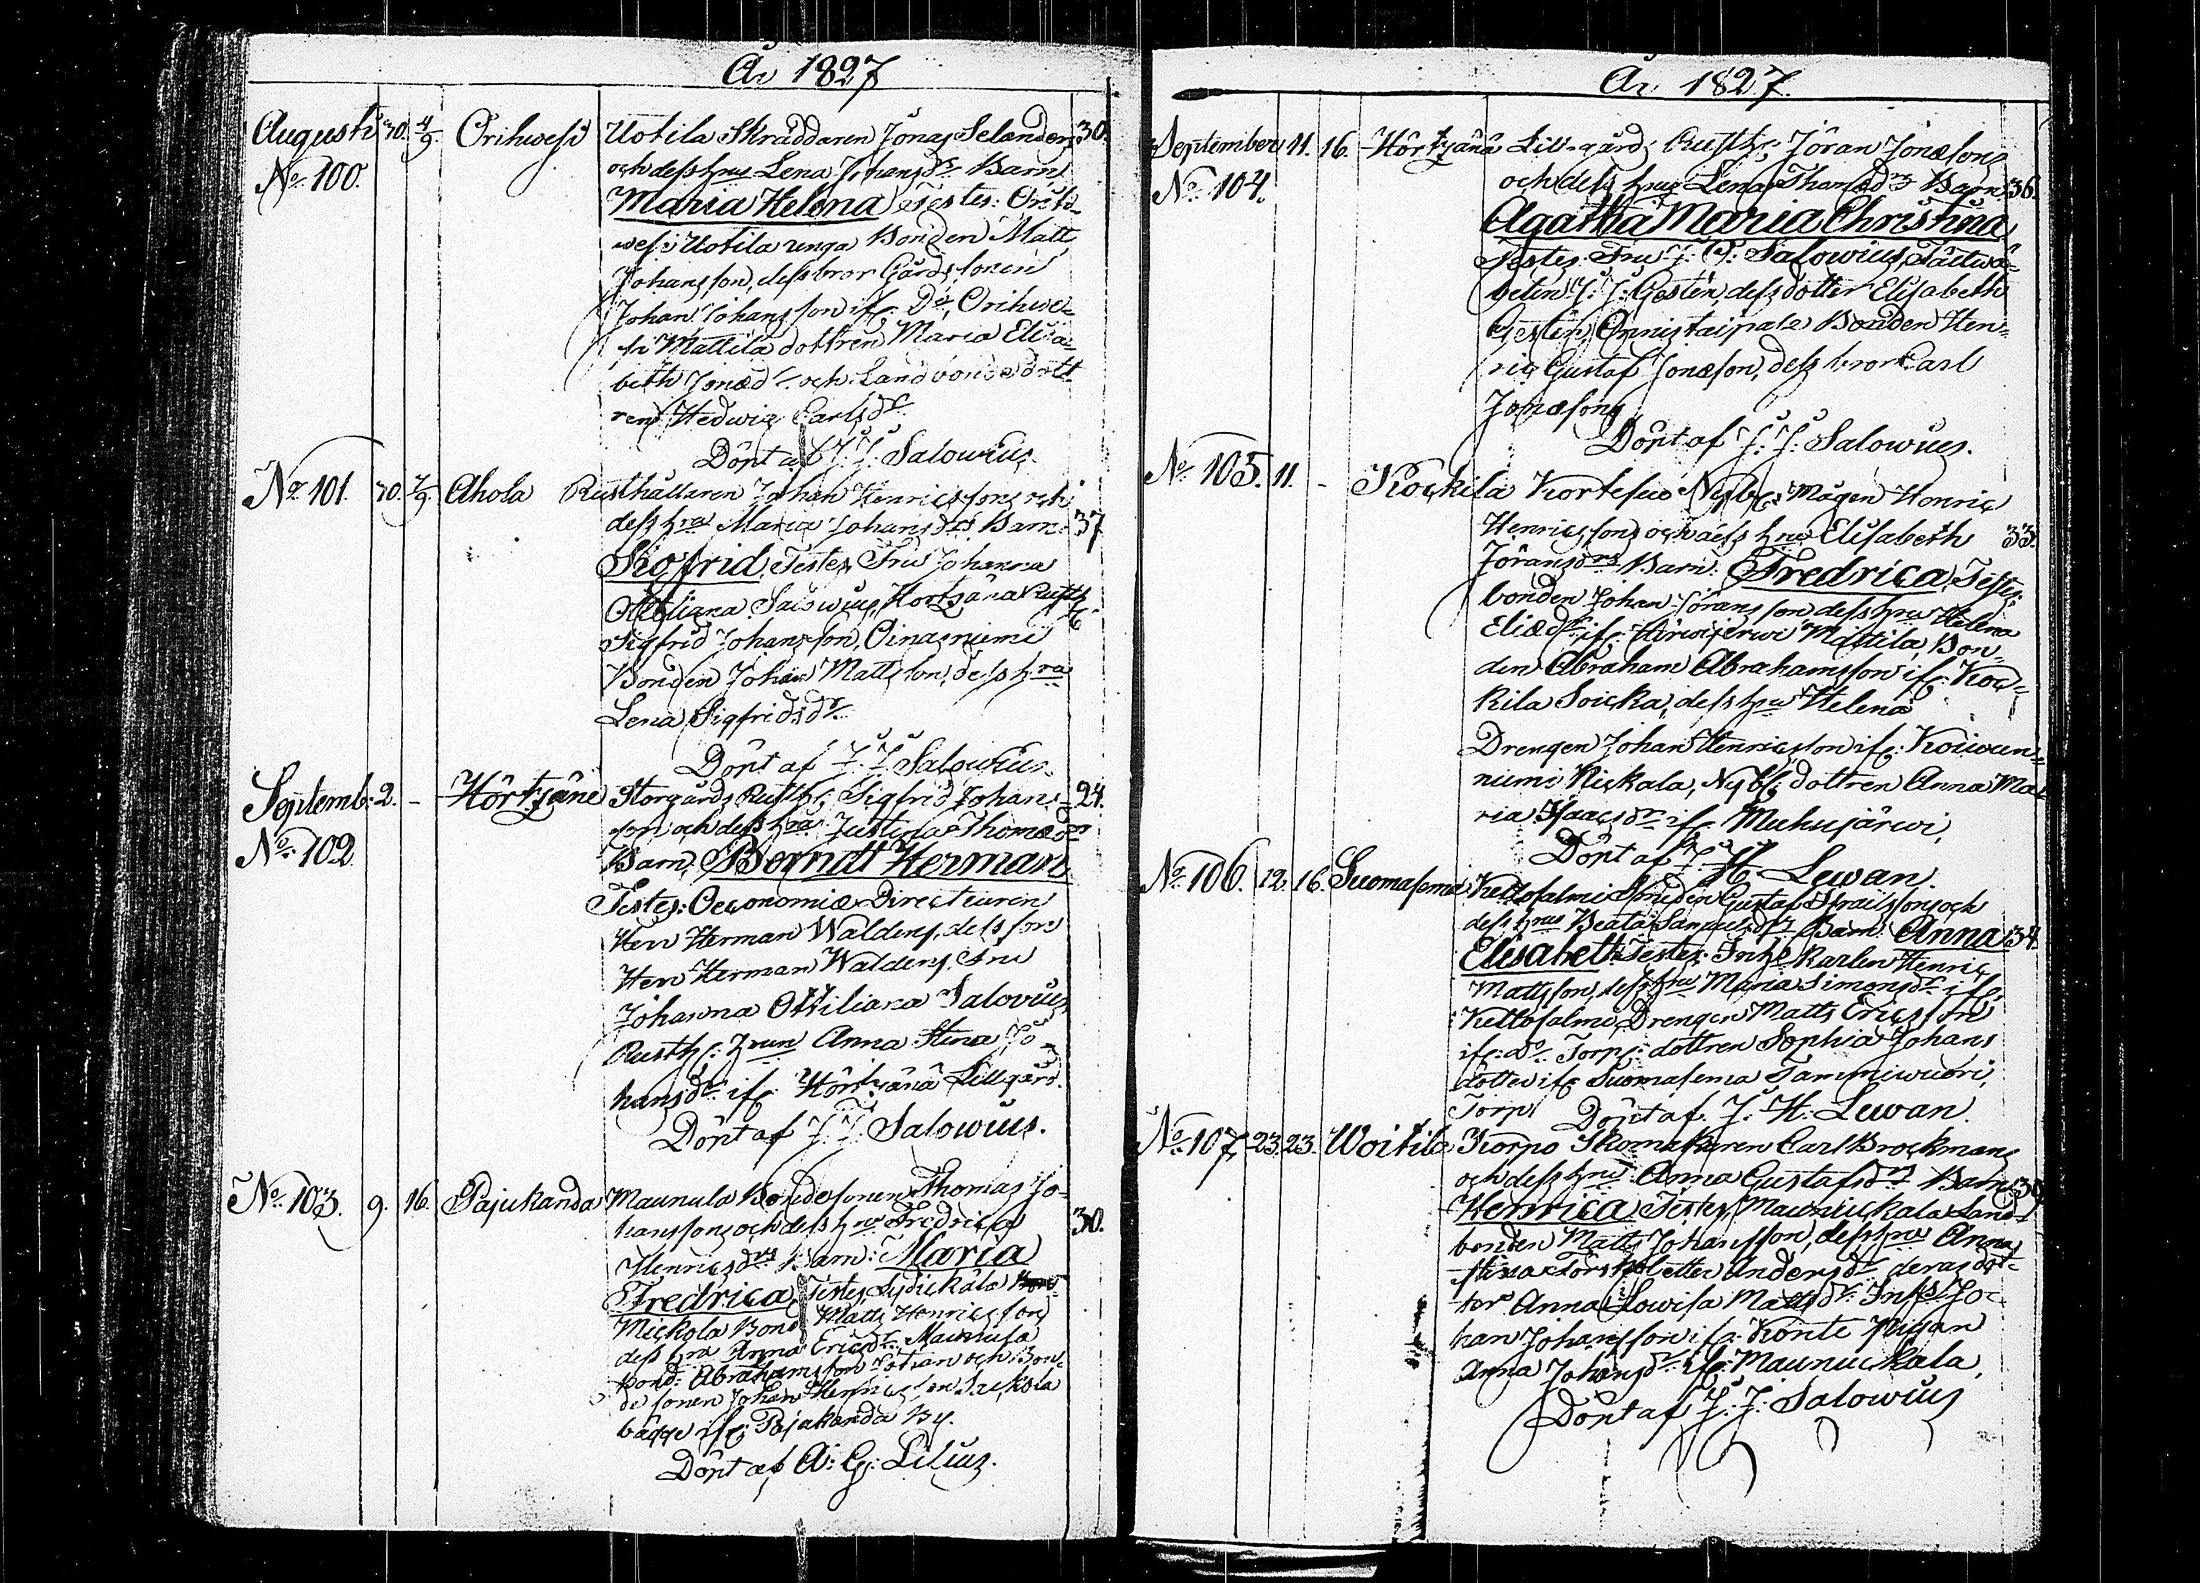 År 1827
Augusti 30. 4/9. Orihwesi Uotila Skräddaren Jonas Selanders 30.
No 100. och dess hrus Lena Johansdrs Barn
Maria Helena Testes: Orih-
wesi Uotila unga Bonden Matts
Johansson, dess bror Gårds sonen
Johan Johansson ifr. Do, Orihwe-
si Mattila dottren Maria Elisa-
beth Jonædr. och Landbondedott
ren Hedwig Carlsdr.
Döpt af J. J. Salowius.
No 101. 30. 2/9. Ahola Rusthållaren Johan Henricssons och
dess hrus Maria Johansdrs Barn: 37
Sigfrid, Testes Fru Johanna
Ottiliana Salowius, Hörtsänä Rusth.
Sigfrid Johansson, Oinasniemi
Bonden Johan Mattsson, dess hra
Lena Sigfridsdr.
Döpt af J. J. Salowius.
Septemb: 2. - Hörtsänä Storgårds Rusth: Sigfrid Johans- 24.
No 102 son och dess hrus Justina Thomædrs
Barn, Berndt Herman
Testes: Oeconomiæ Directeuren
Herr Herman Waldens, dess son
Herr Herman Waldens, Fru
Johanna Ottiliana Salovius
Rusth: hrun Anna Stina Jo-
hansdr ifr Hörtsänä Lillgård.
Döpt af J. J. Salowius.
No 103. 9. 16. Pajukanda Maunula Bondesonen Thomas Jo-
hanssons och dess hrus Fredrica 30.
Henricsdrs Barn: Maria
Fredrica, Testes
Mickola Bond Matts Henricsson
dess hra Anna Ericsdr, Maunula
Bond: Abrahamsson Johan och Bon-
de sonen Johan Henricsson
bägge ifr: Pajukanda By.
Döpt af A: G: Lilius.
År 1827.
September 11. 16. Hörtsänä Lillgårds Rusth: Jöran Jonæsons
No 104. och dess hrus Lena Thomædrs Barn 36.
Agatha Maria Christina
Testes: Fru J: O: Salowius,
beten J: J: Gestén, dess dotter Elisabeth
Gestén, Onnistaipale Bonden Hen-
ric Gustaf Jonæson, dess bror Carl
Jonæsons
Döpt af J: J: Salowius.
No 105. 11. - Kockila Kortesuo Nyb: Mågen Henric
Henricssons och dess hrus Elisabeth 33.
Jöransdrs Barn: Fredrica, Testes:
bonden Johan Göransson dess hru Helena
Eliædr ifr: Hirwijerwi Mattila, Bon-
den Abraham Abrahamsson ifr: Koc-
kila Soicka, dess hru Helena
Drengen Johan Henricsson ifr: Koiwun-
niemi Nickala, Nyb: dottren Anna Ma
ria Isaacsdr ifr Muhujärwi,
Döpt af J. H. Lewan.
No 106. 12. 16. Suomasema Kettosalmi Smeden Gustaf Israelssons och
dess hrus Beata Samuelsdrs Barn: Anna 34.
Elisabeth Testes: Inhs Karlen Henric
Mattsson, dess hru Maria Simonsdr ifr.
Kettosalmi, Drengen Matts Ericsson
ifr: do. Torp: dottren Sophia Johans
dotter ifr Suomasema Tammiwuori,
Torp Döpt af J. H. Lewan
No 107. 23. 23. Woitila Korpo Skomakaren Carl Brockmans
och dess hrus Anna Gustafsdrs Barn 30
Henrica Testes, Maunuckala Land-
bonden Matts Johansson, dess hru Anna
Stina Andersdr deras dot-
ter Anna Lowisa Mattsdr. Inhs Jo-
han Johansson ifr Konte Pigan
Anna Johansdr. ifr: Maunuckala,
Döpt af J: J: Salowius